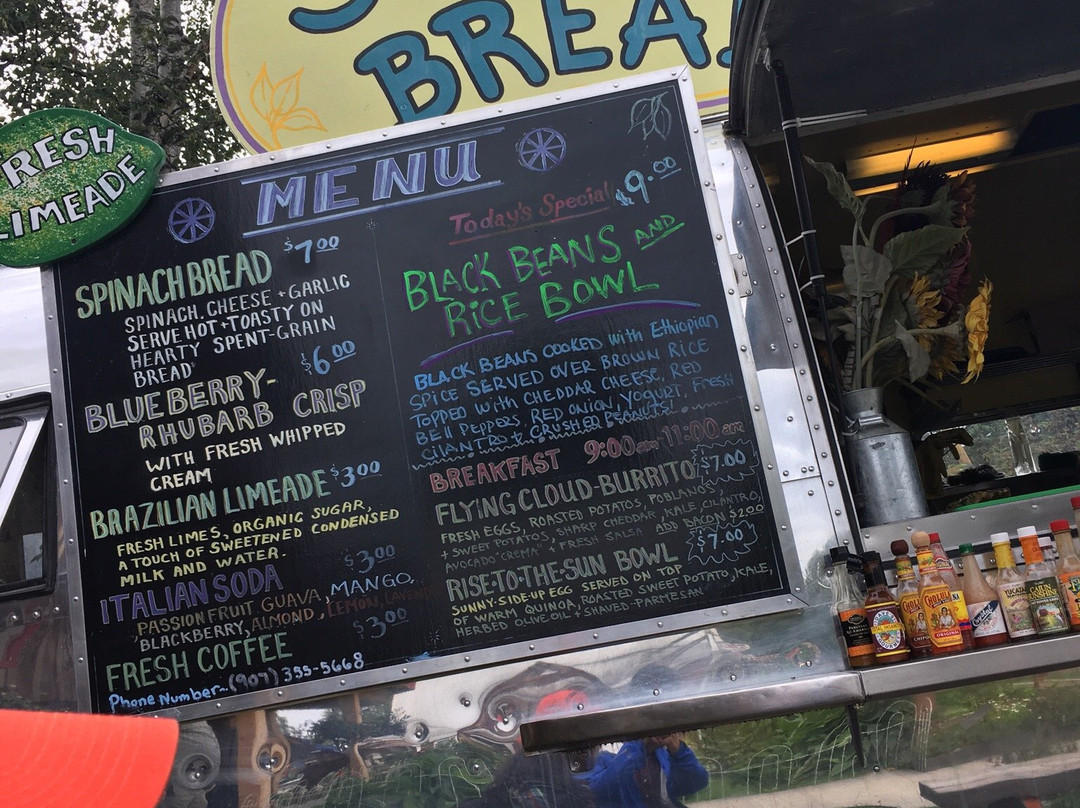 BREA
FRESH
LIMEADE
MENU
SPINACH BREAD $7.00
SPINACH, CHEESE + GARLIC
SERVE HOT + TOASTY ON
HEARTY SPENT-GRAIN
BREAD
BLUEBERRY- $6.00
RHUBARB CRISP
WITH FRESH WHIPPED
CREAM
BRAZILIAN LIMEADE $3.00
FRESH LIMES, ORGANIC SUGAR,
A TOUCH OF SWEETENED CONDENSED
MILK AND WATER.
ITALIAN SODA $3.00
PASSION FRUIT, GUAVA, MANGO,
BLACKBERRY, ALMOND, LEMON,
FRESH COFFEE $3.00
Phone Number~ (907) 355-5668
Today's Special $9.00
BLACK BEANS AND
RICE BOWL
BLACK BEANS COOKED with Ethiopian
SPICE SERVED OVER BROWN RICE
Topped with CHEDDAR CHEESE, RED
Bell Peppers, RED ONION, YOGURT, FRESH
CILANTRO + CRUSHED PEANUTS!
BREAKFAST 9:00am-11:00am
FLYING CLOUD-BURRITO $7.00
FRESH EGGS, ROASTED POTATOS, POBLANOS,
+ SWEET POTATOS, SHARP CHEDDAR, KALE, CILANTRO,
AVOCADO "CREMA" + FRESH SALSA ADD BACON $2.00
RISE-TO-THE-SUN BOWL $7.00
SUNNY-SIDE-UP EGG SERVED ON TOP
OF WARM QUINOA, ROASTED SWEET POTATO, KALE,
HERBED OLIVE OIL + SHAVED-PARMESAN
CHOLULA
ORIGINAL
Crystal